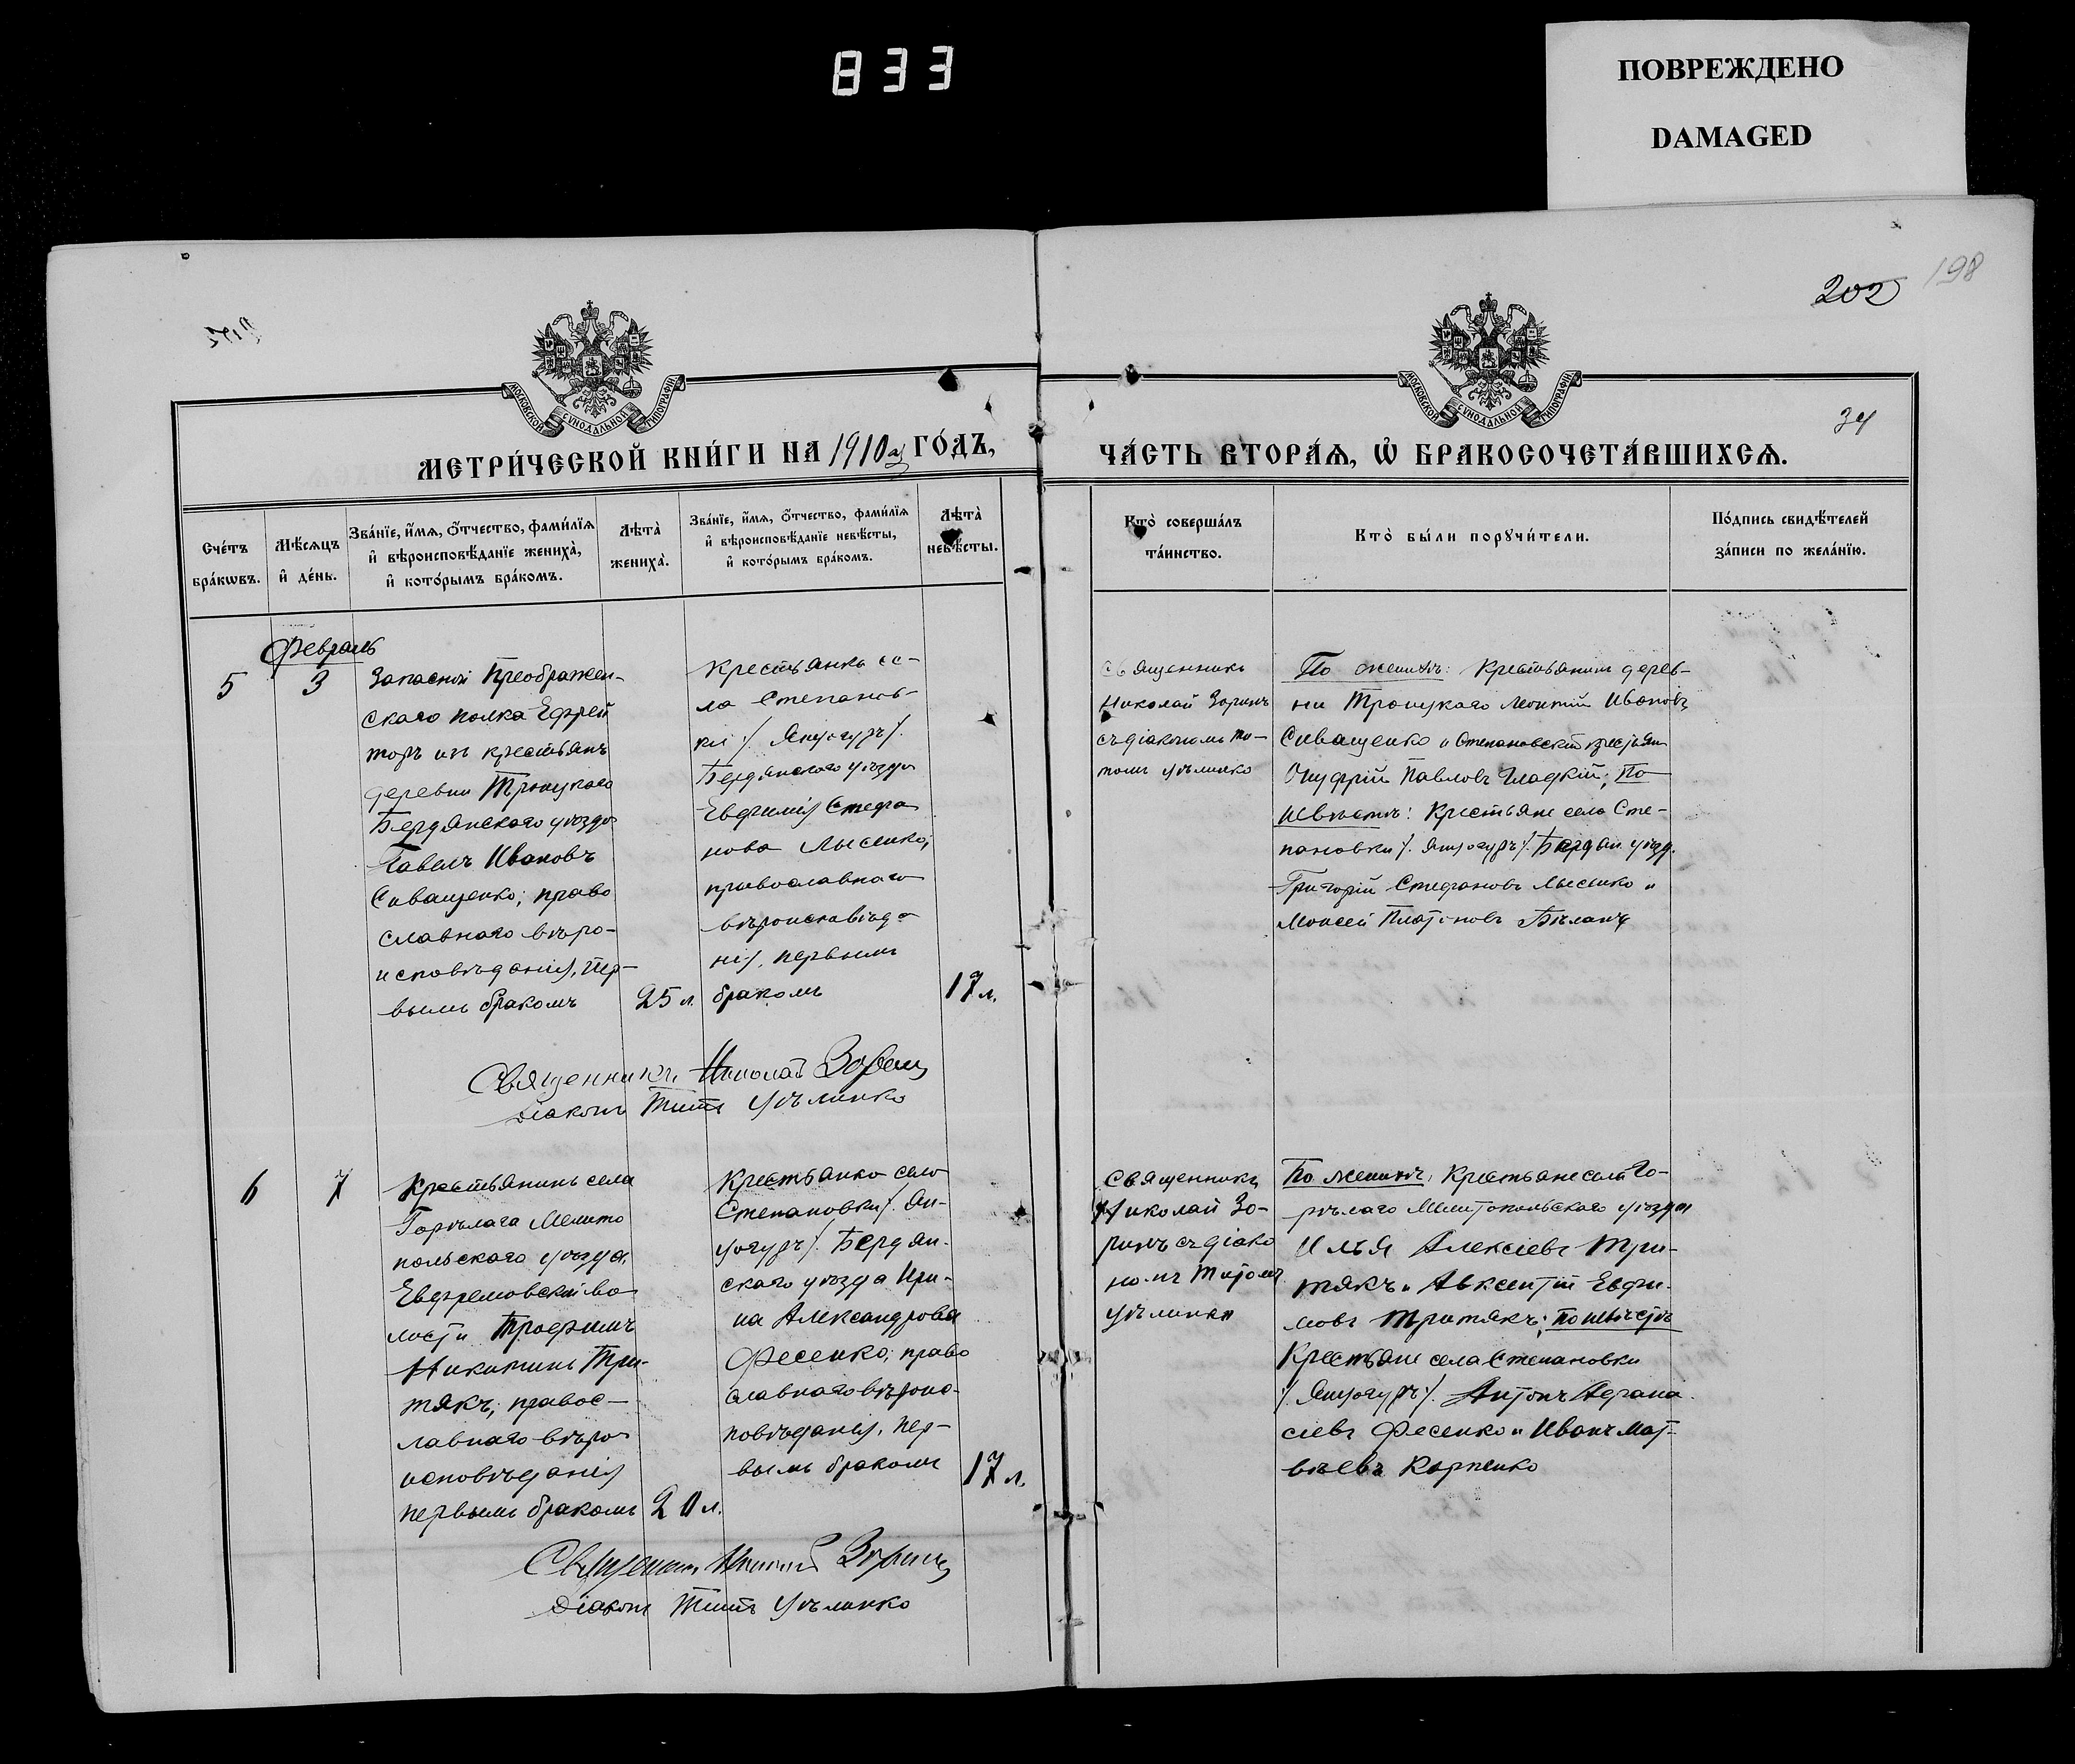 833
ПОВРЕЖДЕНО
DAMAGED
198
202
34
МОСКОВСКОЙ СѴНОДАЛЬНОЙ ТИПОГРАФІИ
МОСКОВСКОЙ СѴНОДАЛЬНОЙ ТИПОГРАФІИ
МЕТРИ́ЧЕСКОЙ КНИ́ГИ НА 1910 ГО́ДЪ,
ЧА́СТЬ ВТОРА́Ѧ, Ѽ БРАКОСОЧЕТА́ВШИХСѦ.
Сче́тъ
бра́кѡвъ.
Мѣ́сѧцъ
и҆ де́нь.
Зва́нїе, и҆́мѧ, ѻ҆́тчество, фами́лїѧ
и҆ вѣроисповѣ́данїе жениха̀,
и҆ кото́рымъ бра́комъ.
Лѣта̀
жениха̀.
Зва́нїе, и҆́мѧ, ѻ҆́тчество, фами́лїѧ
и҆ вѣроисповѣ́данїе невѣ́сты,
и҆ кото́рымъ бра́комъ.
Лѣта̀
невѣ́сты.
Кто̀ соверша́лъ
та́инство.
Кто̀ бы́ли порꙋчи́тели.
По́дпись свидѣ́телей
за́писи по жела́нїю.
Февраль
5
3
Запасной Преображен-
скаго полка Ефрей
торъ изъ крестьянъ
деревни Троицкаго
Бердянскаго уѣзда
Павелъ Ивановъ
Сиващенко; право
славнаго вѣро-
исповѣданія, пер-
вымъ бракомъ
25 л.
Крестьянка се-
ла Степанов-
ки /. Янчогуръ /.
Бердянскаго уѣзда
Евфимія Стефа
нова Лысенко,
православнаго
вѣроисповѣда
нія, первымъ
бракомъ
17 л.
Священникъ
Николай Зоринъ
съ діакономъ Ти-
томъ
По женихѣ: Крестьянинъ дерев-
ни Троицкаго Ивановъ
Сиващенко и Степановскій крестьян
Онуфрій Павловъ Гладкій; По
невѣстѣ: Крестьяне села Сте-
пановки /. Янчогуръ /. Бердян. уѣзд.
Григорій Стефановъ Лысенко и
Моисей Платоновъ
Священникъ Николай Зоринъ
Діаконъ Титъ
6
7
Крестьянинъ села
Горѣлаго Мелито
польскаго уѣзда,
Евфремовской во
лости Трофимъ
Никитинъ Три-
тякъ; правос-
лавнаго вѣро
исповѣданія
первымъ бракомъ
20 л.
Крестьянка села
Степановки /. Ян-
чогуръ /. Бердян-
скаго уѣзда Ири-
на Александрова
Фесенко; право
славнаго вѣроис-
повѣданія, пер-
вымъ бракомъ
17 л.
Священникъ
Николай Зо-
ринъ съ діако
номъ Титомъ
По женихѣ, Крестьяне села Го-
рѣлаго Мелитопольскаго уѣзда
Илья Алексіевъ Три-
тякъ и Авксентій Евфи-
мовъ Тритякъ; по невѣстѣ
Крестьяне села Степановки
/. Янчогуръ /. Антонъ Афана
сіевъ Фесенко и Иванъ Мат-
вѣевъ Карпенко
Священникъ Николай Зоринъ
Діаконъ Титъ